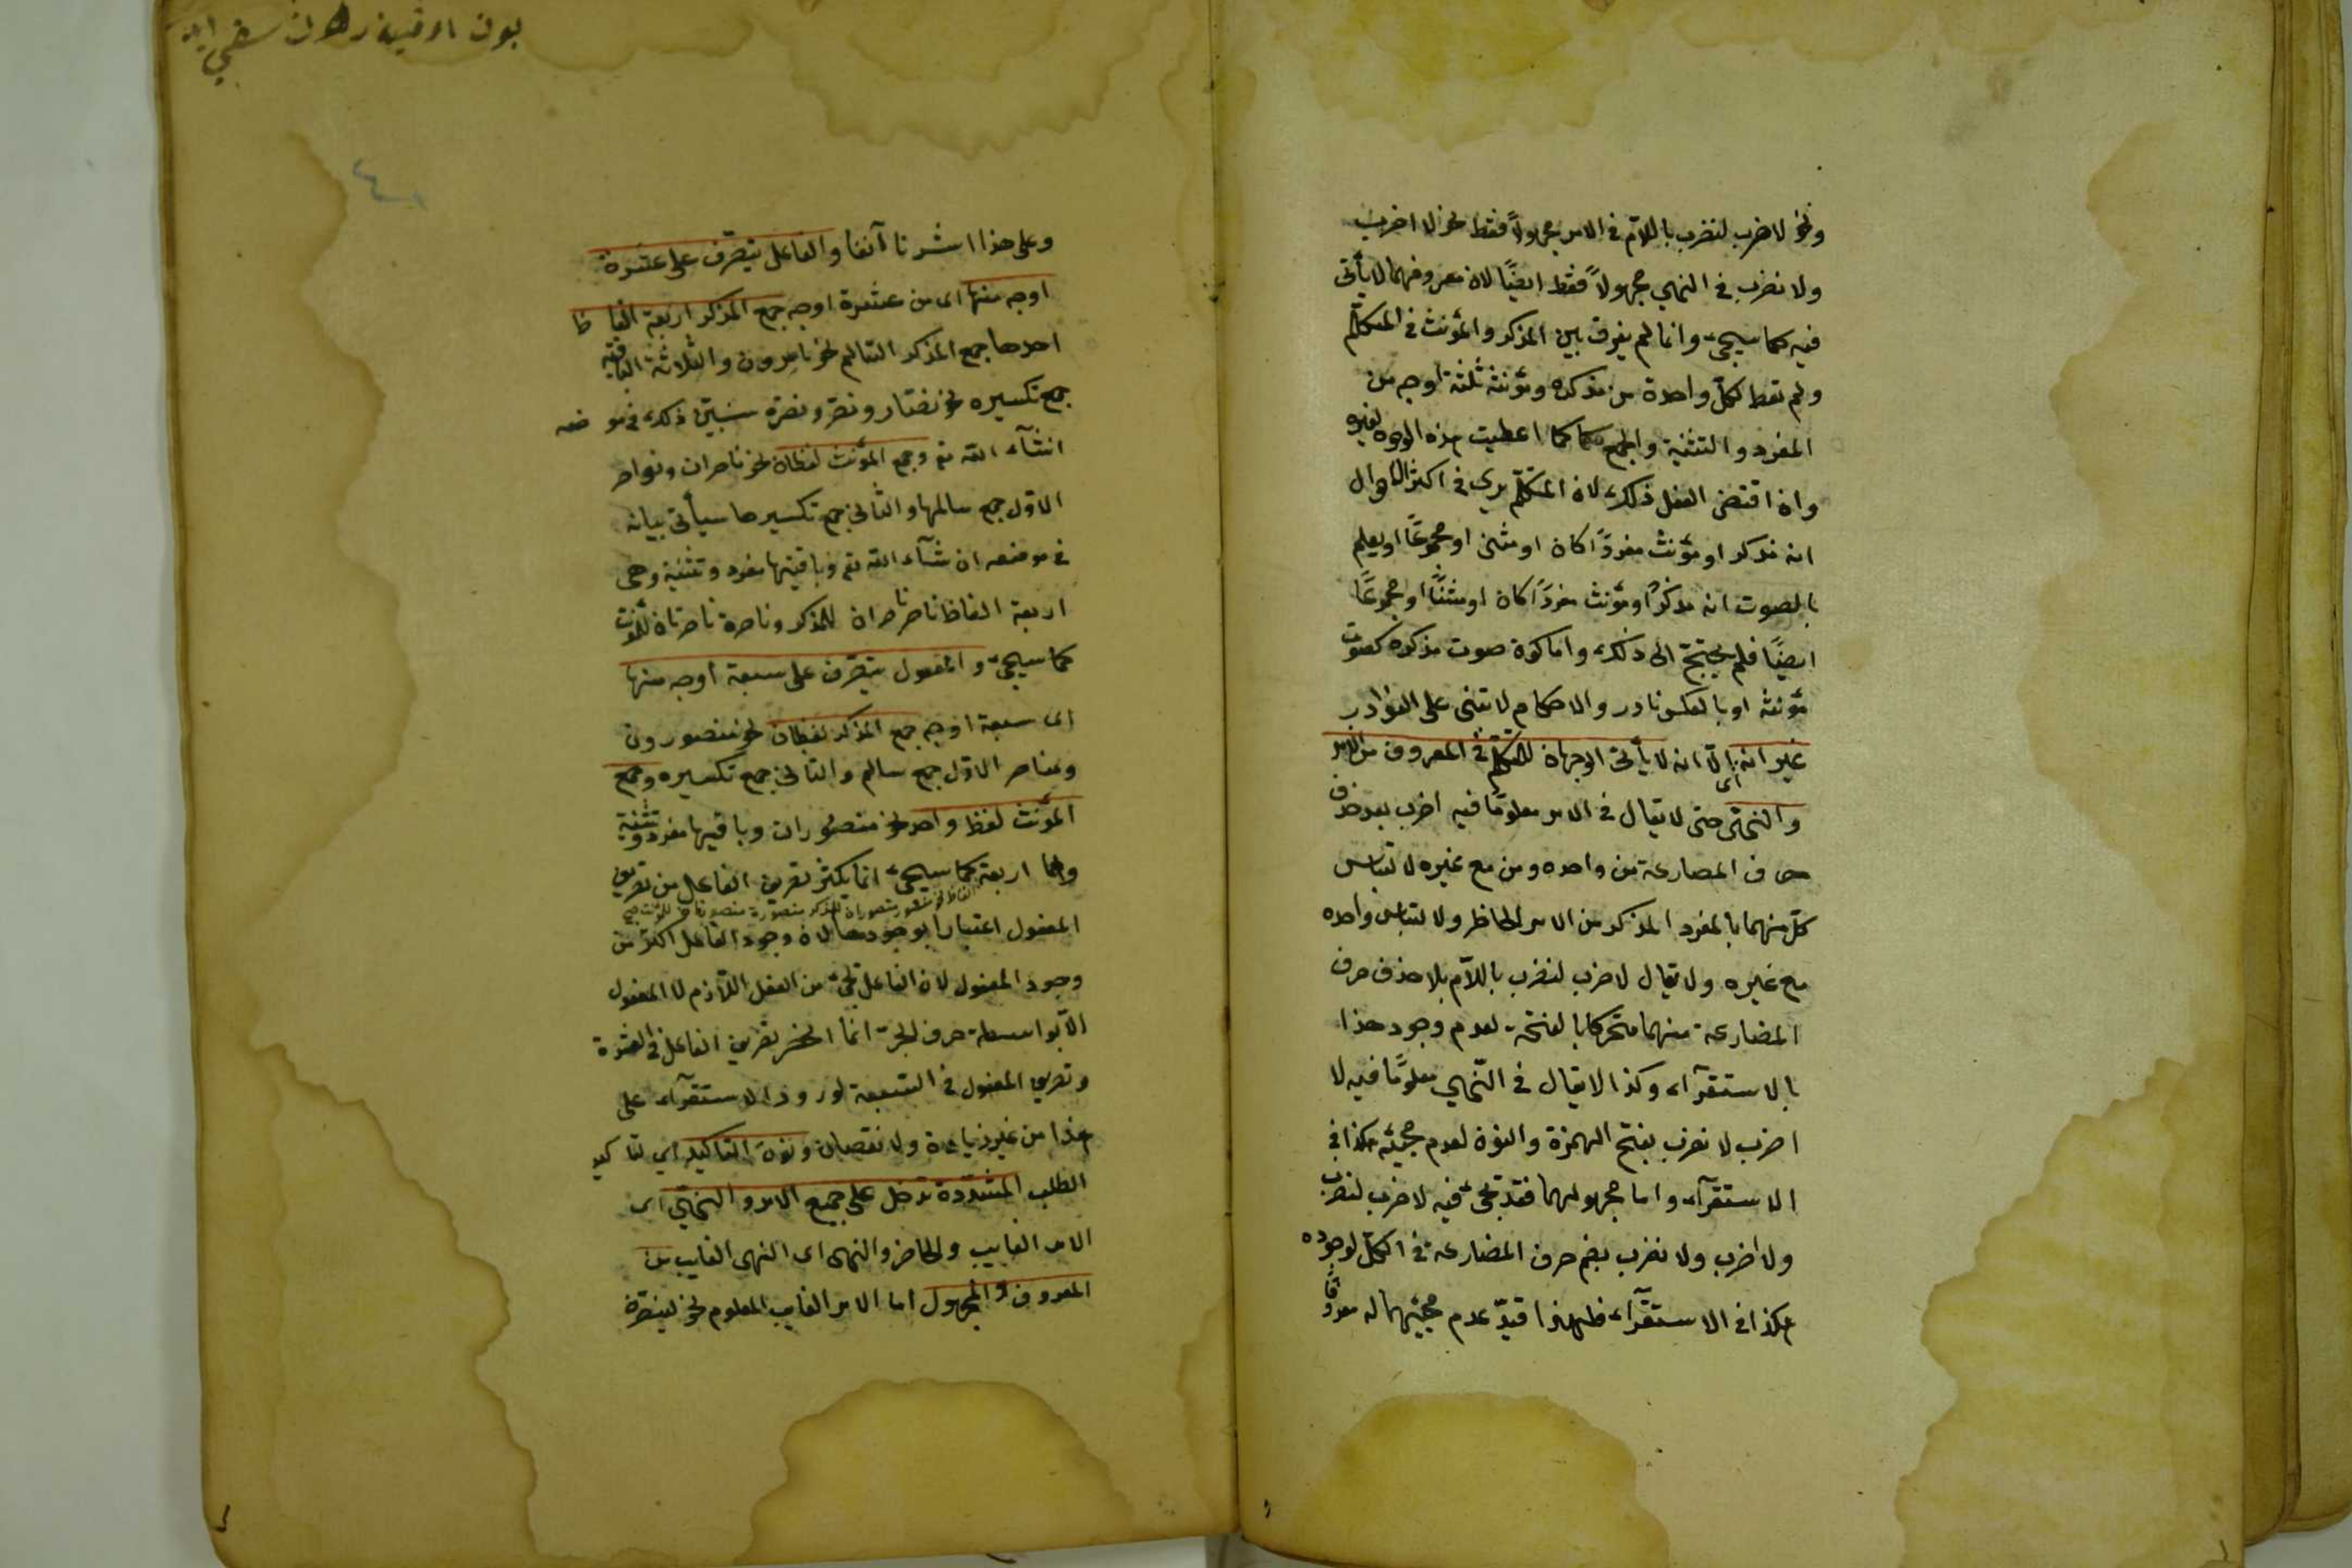 ونحو لاضرب لنضرب باللام في الامر مجهولاً فقط نحو لا اضرب
ولا نضرب في النهي مجهولاً فقط ايضًا لان معروفهما لا يأتى
فيه كما سيجئ وانما لم يفرق بين المذكر والمؤنث في المتكلم
ولم تعط لكل واحدة من مذكره ومؤنثه ثلثة اوجه من
المفرد والتثنية والجمع كما اعطيت هذه الوجوه لغيره
وان اقتضى العقل ذلك لان المتكلم يرى في اكثر الاحوال
انه مذكر او مؤنث مفردًا كان او مثنى او مجموعًا او يعلم
بالصوت انه مذكر او مؤنث مفردًا كان او مثنًّا او مجموعًا
ايضًا فلم يحتج الى ذلك واما كون صوت مذكره كصوت
مؤنثه او بالعكس نادر والاحكام لا تبنى على النوادر
غير انه اى الا انه لا يأتى الوجهان للمتكلم في المعروف من الامر
والنهى حتى لا يقال في الامر معلومًا فيه اضرب بعد حذف
حرف المضارعة من واحده ومن مع غيره لالتباس
كل منهما بالمفرد المذكر من الامر الحاظر ولالتباس واحده
مع غيره ولا يقال لاضرب لنضرب باللام بلا حذف حرف
المضارعة منهما متحركا بالفتحة لعدم وجود هذا
بالاستقرآء وكذا لا يقال في النهي معلومًا فيه لا
اضرب لا نضرب بفتح الهمزة والنون لعدم مجيئه هكذا في
الاستقرآء واما مجهولهما فقد يجئ فيه لاضرب لنضرب
ولا اضرب ولا نضرب بضم حرف المضارعة في الكل لوجوده
هكذا في الاستقرآء فلهذا قيد عدم مجيئهما له معروفًا
وعلى هذا اشرنا آنفا والفاعل يتصرف على عشرة
اوجه منها اى من عشرة اوجه جمع المذكر اربعة الفاظ
احدها جمع المذكر السالم نحو ناصرون والثلاثة الباقية
جمع تكسيره نحو نصّار ونصّر ونصرة سنبيّن ذلك في موضعه
انشآء الله تع وجمع المؤنث لفظان نحو ناصرات ونواصر
الاول جمع سالمها والثانى جمع تكسيرها سيأتى بيانه
في موضعه ان شآء الله تع وباقيتها مفرد وتثنية وهى
اربعة الفاظ ناصر ناصران للمذكر وناصرة ناصرتان للمؤنث
كما سيجئ والمفعول يتصرف على سبعة اوجه منها
اى سبعة اوجه جمع المذكر لفظان نحو منصورون
ومناصر الاول جمع سالم والثانى جمع تكسيره وجمع
المؤنث لفظ واحد نحو منصورات وباقيها مفرد وتثنية
وهما اربعة كما سيجئ انما يكثر تصريف الفاعل من تصريف
الفاظ نحو منصور منصوران للمذكر منصورة منصورتان للمؤنث صح
المفعول اعتبارا بوجودهما لان وجود الفاعل اكثر من
وجود المفعول لان الفاعل يجئ من الفعل اللازم لا المفعول
الا بواسطة حرف الجر انما انحصر تصريف الفاعل في العشرة
وتصريف المفعول في السبعة لورود الاستقرآء على
هذا من غير زيادة ولا نقصان ونون التاكيد اى لتاكيد
الطلب المشددة تدخل على جميع الامر والنهى اى
الامر الغايب والحاضر والنهى اى النهى الغايب من
المعروف والمجهول اما الامر الغايب المعلوم نحو لينصرن